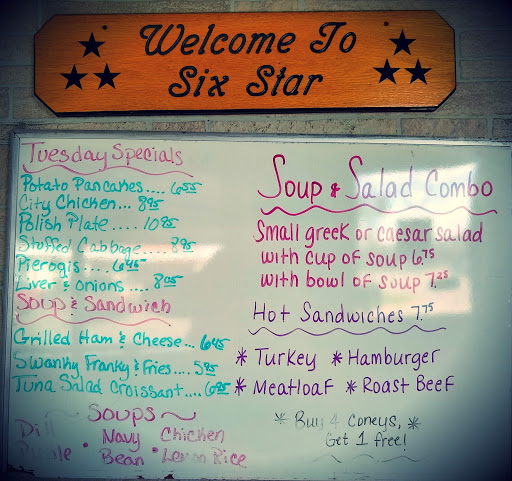 Welcome To
Six Star
Tuesday Specials
Potato Pancakes.... 6.55
City Chicken... 8.95
Polish Plate.... 10.95
Stuffed Cabbage.... 8.95
Pierogis.... 6.45
Liver & Onions.... 8.05
Soup & Sandwich
Grilled Ham & Cheese... 6.45
Swanky Franky & Fries.... 5.95
Tuna Salad Croissant.... 6.95
~ Soups ~
Dill Pickle • Navy Bean • Chicken Lemon Rice
Soup & Salad Combo
Small greek or caesar salad
with cup of soup 6.75
with bowl of soup 7.25
Hot Sandwiches 7.75
* Turkey * Hamburger
* Meatloaf * Roast Beef
* Buy 4 coneys, *
Get 1 free!